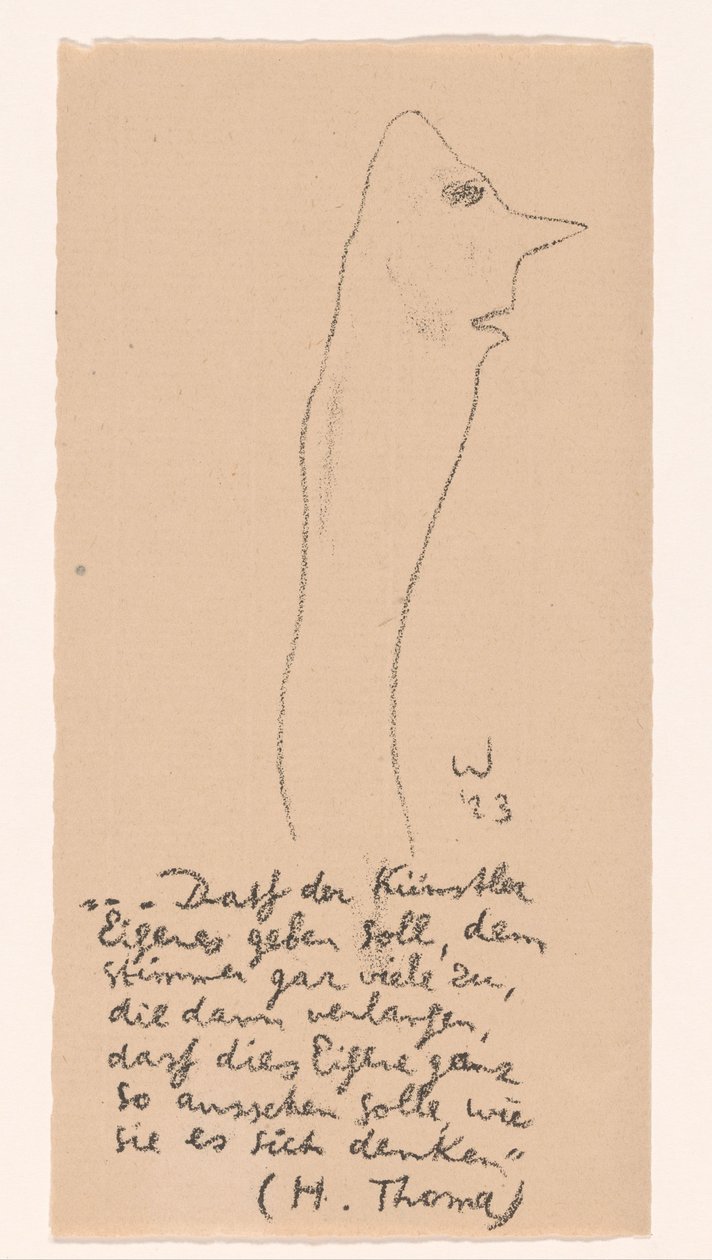 W
'23
„.. - Dass der Künstler
Eigenes geben soll, dem
stimmen gar viele zu,
die dann verlangen,
dass dies Eigene ganz
so aussehen solle, wie
sie es sich denken“
(H. Thoma)